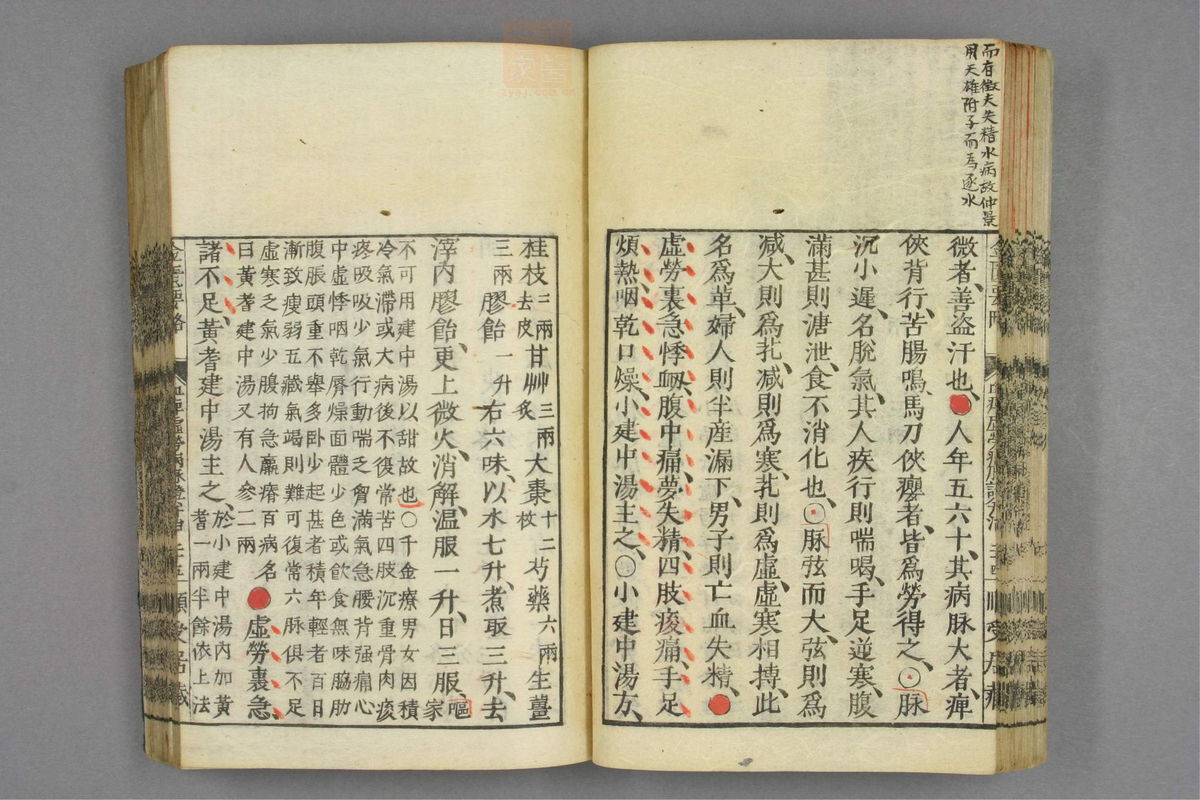 而有微夫失精水病故仲景
用天雄附子而爲逐水
微者善盜汗也●人年五六十其病脉大者痺
俠背行苦腸鳴馬刀俠癭者皆爲勞得之○脉
沉小遲名脫氣其人疾行則喘喝手足逆寒腹
滿甚則溏泄食不消化也○脉弦而大弦則爲
减大則爲芤减則爲寒芤則爲虛虛寒相搏此
名爲革婦人則半産漏下男子則亡血失精●
虛勞裏急悸衂腹中痛夢失精四肢痠痛手足
煩熱咽乾口燥小建中湯主之○小建中湯方
桂枝三兩去皮甘艸三兩炙大棗十二枚芍藥六兩生薑
三兩膠飴一升右六味以水七升煮取三升去
滓内膠飴更上微火消解温服一升日三服嘔家
不可用建中湯以甜故也○千金療男女因積
冷氣滯或大病後不復常苦四肢沉重骨肉痠
疼吸吸少氣行動喘乏胷滿氣急腰背强痛心
中虛悸咽乾脣燥面體少色或飲食無味脇肋
腹脹頭重不舉多卧少起甚者積年輕者百日
漸致瘦弱五藏氣竭則難可復常六脉俱不足
虛寒之氣少腹拘急羸瘠百病名
曰黃耆建中湯又有人參二兩●虛勞裏急
諸不足黃耆建中湯主之於小建中湯内加黃
耆一兩半餘依上法